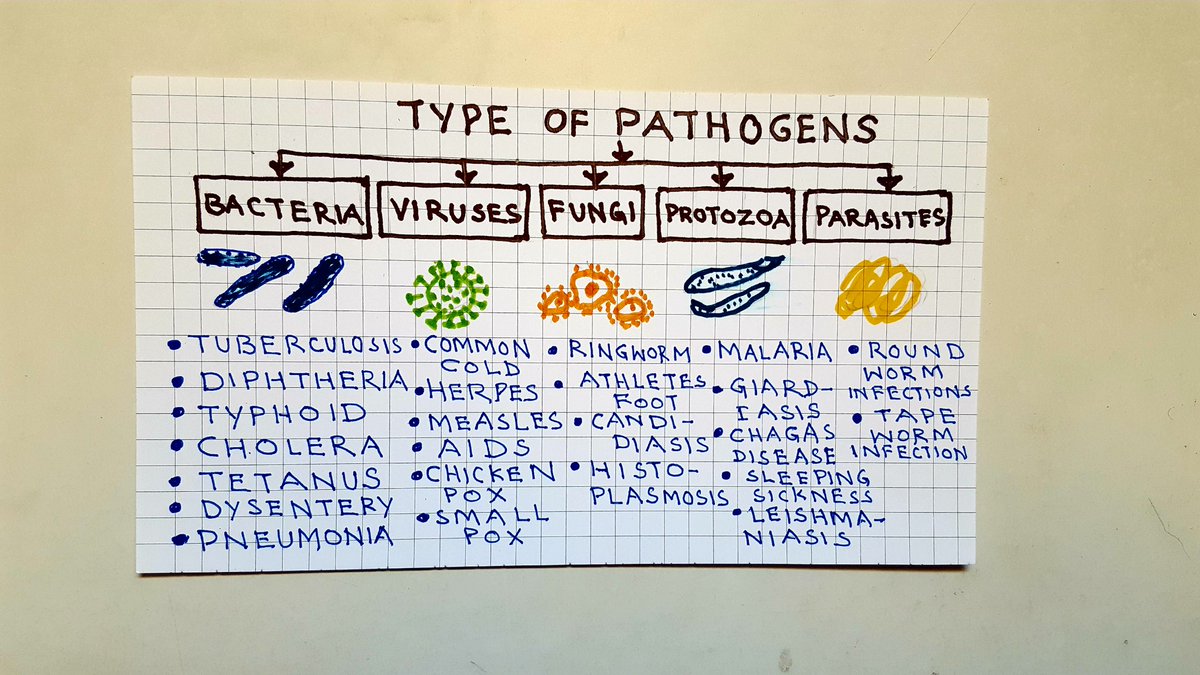 TYPE OF PATHOGENS
BACTERIA
VIRUSES
FUNGI
PROTOZOA
PARASITES
• TUBERCULOSIS
• DIPHTHERIA
• TYPHOID
• CHOLERA
• TETANUS
• DYSENTERY
• PNEUMONIA
• COMMON
COLD
• HERPES
• MEASLES
• AIDS
• CHICKEN
POX
• SMALL
POX
• RINGWORM
• ATHLETES
FOOT
• CANDI-
DIASIS
• HISTO-
PLASMOSIS
• MALARIA
• GIARD-
IASIS
• CHAGAS
DISEASE
• SLEEPING
SICKNESS
• LEISHMA-
NIASIS
• ROUND
WORM
INFECTIONS
• TAPE
WORM
INFECTION